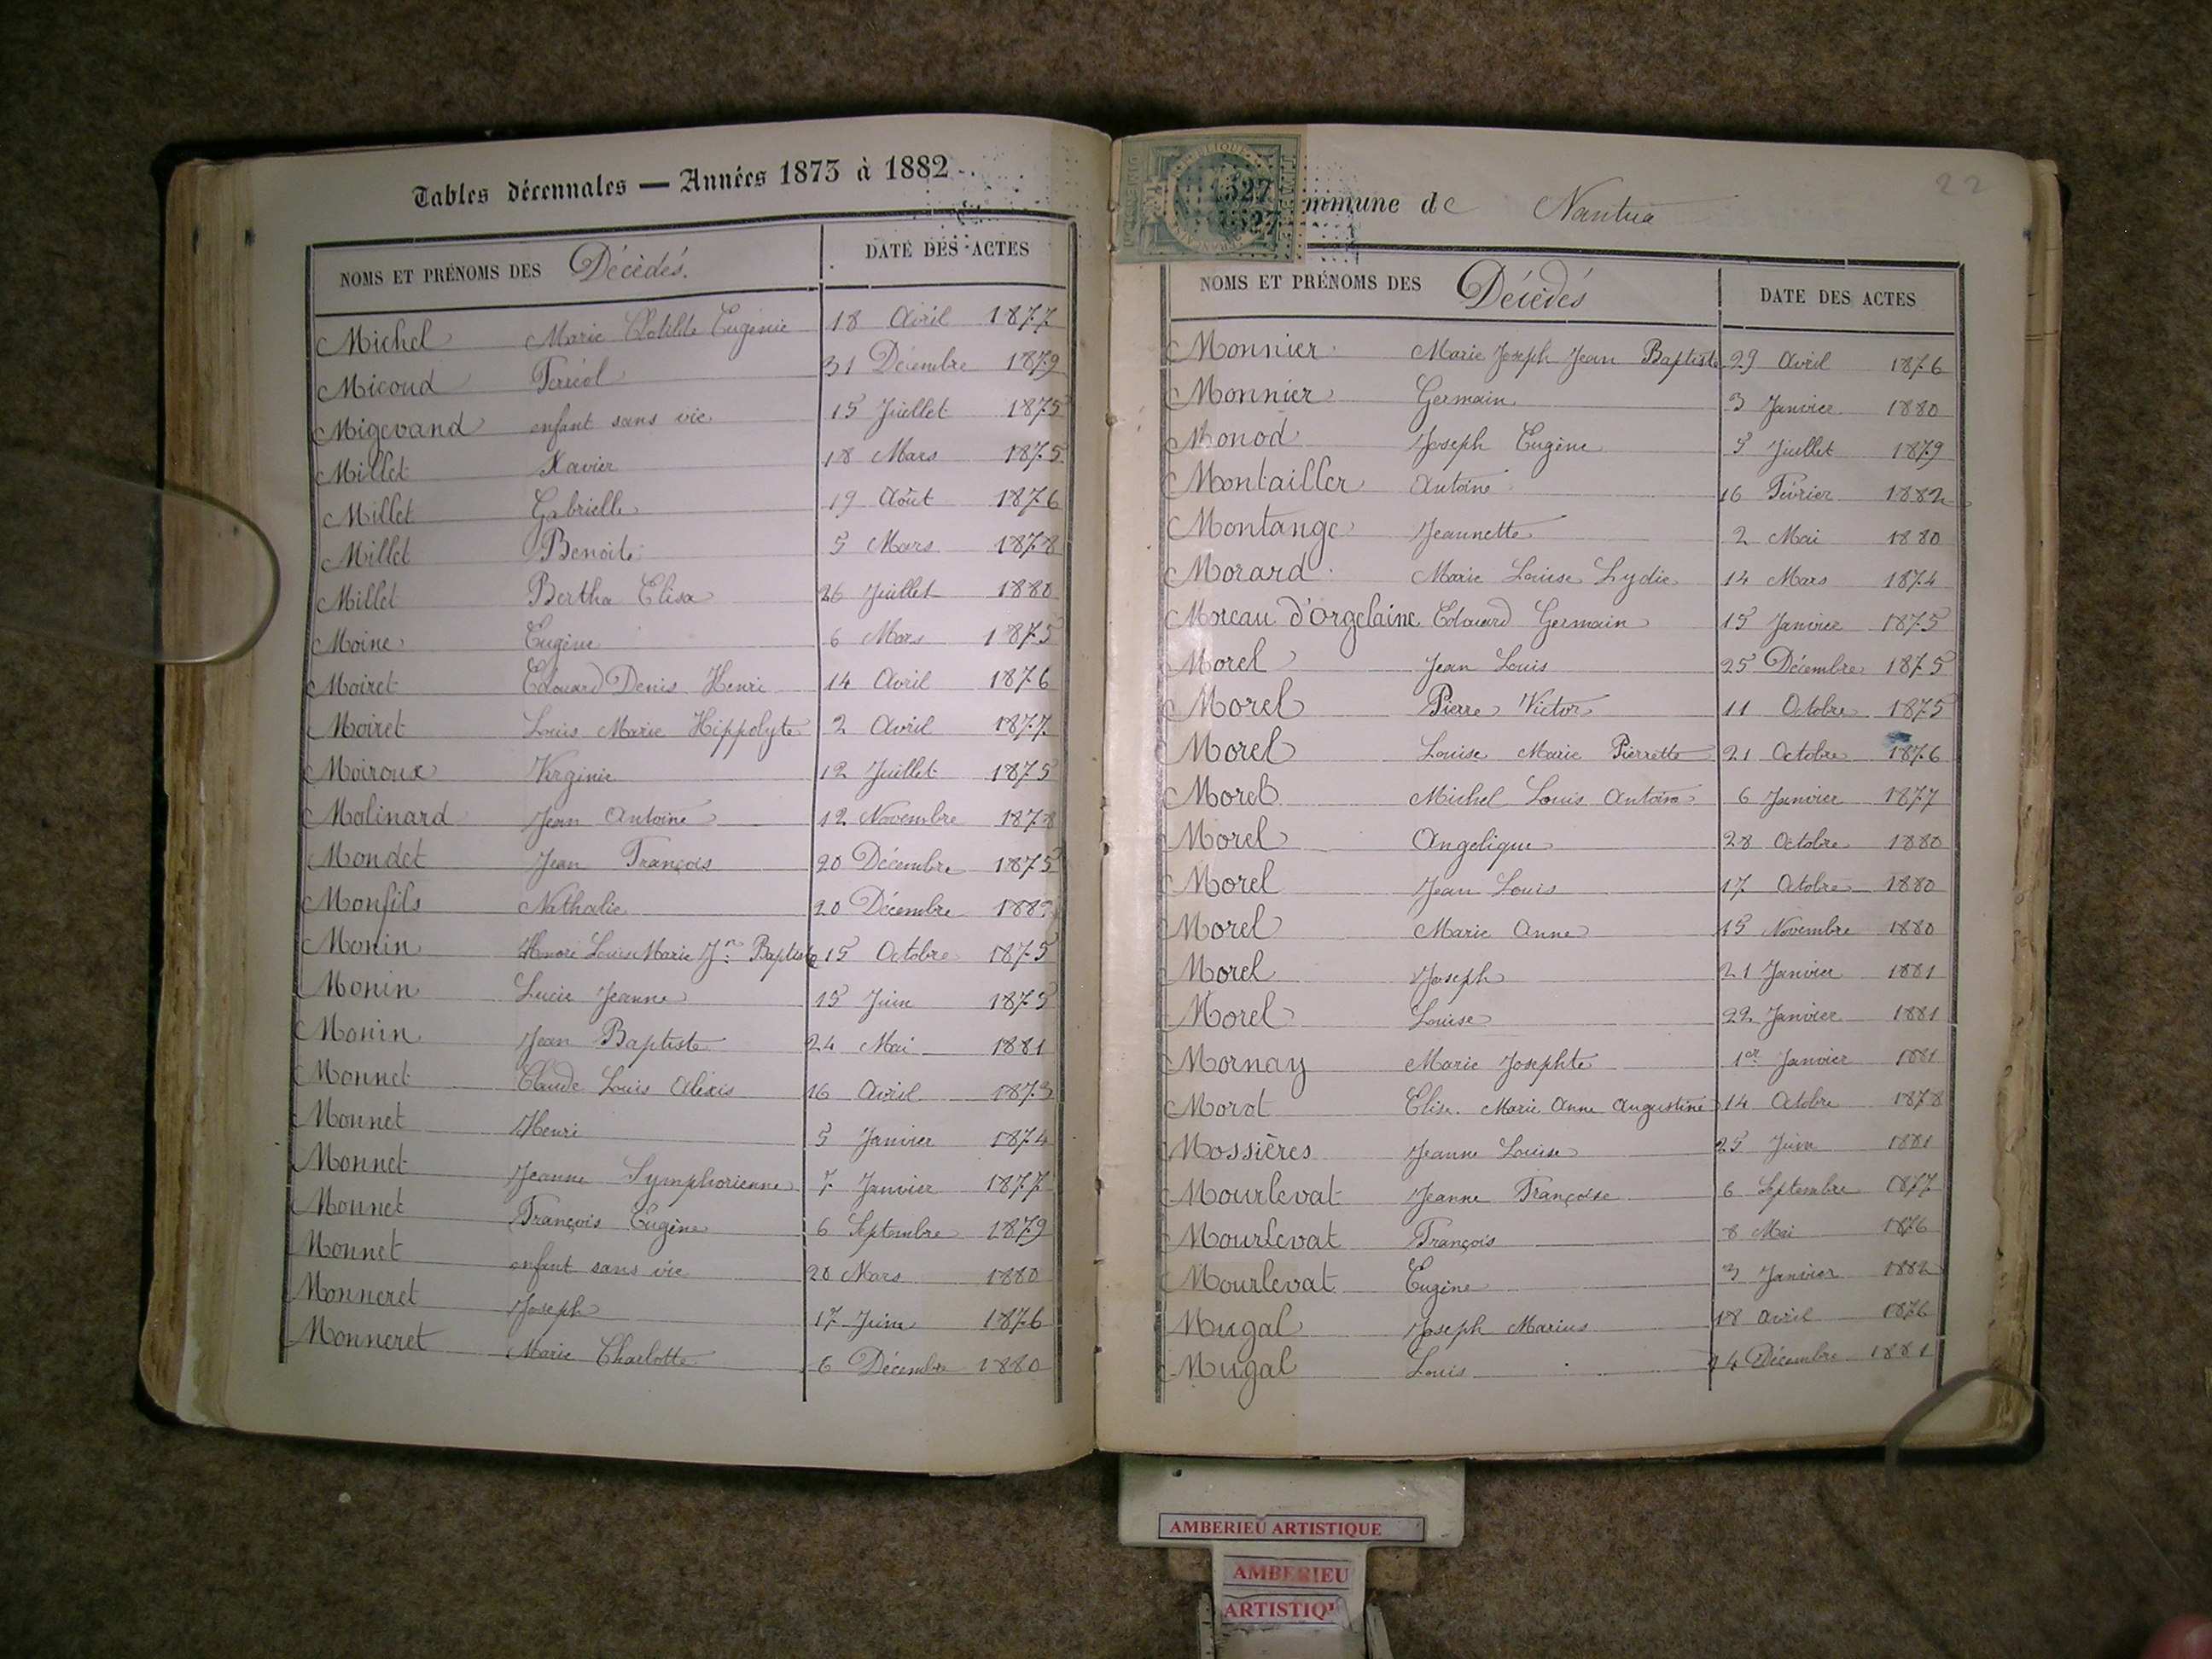 Tables décennales — Années 1873 à 1882
NOMS ET PRÉNOMS DES Décédés. DATE DES ACTES
Michel Marie Clotilde Eugénie 18 Avril 1877
Micoud Ferréol 31 Décembre 1879
Migevand enfant sans vie 15 Juillet 1875
Millet Xavier 18 Mars 1875
Millet Gabrielle 19 Août 1876
Millet Benoite 5 Mars 1878
Millet Bertha Elisa 26 Juillet 1880
Moine Eugène 6 Mars 1875
Moiret Edouard Denis Henri 14 Avril 1876
Moiret Louis Marie Hippolyte 2 Avril 1877
Moiroux Virginie 12 Juillet 1875
Molinard Jean Antoine 12 Novembre 1878
Mondet Jean François 20 Décembre 1875
Monfils Nathalie 20 Décembre
Monin Honoré Louis Marie Jn Baptiste 15 Octobre 1875
Monin Lucie Jeanne 15 Juin 1875
Monin Jean Baptiste 24 Mai 1881
Monnet Claude Louis Alexis 16 Avril 1873
Monnet Henri 5 Janvier 1874
Monnet Jeanne Symphorienne 7 Janvier 1877
Monnet François Eugène 6 Septembre 1879
Monnet enfant sans vie 20 Mars 1880
Monneret Joseph 17 Juin 1876
Monneret Marie Charlotte 6 Décembre 1880
22
1527
1527
mmune de Nantua
NOMS ET PRÉNOMS DES Décédés DATE DES ACTES
Monnier Marie Joseph Jean Baptiste 29 Avril 1876
Monnier Germain 3 Janvier 1880
Monod Joseph Eugène 5 Juillet 1879
Montailler Antoine 16 Février 1882
Montange Jeannette 2 Mai 1880
Morard Marie Louise Lydie 14 Mars 1874
Moreau d'Orgelaine Edouard Germain 15 Janvier 1875
Morel Jean Louis 25 Décembre 1875
Morel Pierre Victor 11 Octobre 1875
Morel Louise Marie Pierrette 21 Octobre 1876
Morel Michel Louis Antoine 6 Janvier 1877
Morel Angelique 28 Octobre 1880
Morel Jean Louis 17 Octobre 1880
Morel Marie Anne 15 Novembre 1880
Morel Joseph 21 Janvier 1881
Morel Louise 22 Janvier 1881
Mornay Marie Josephte 1er Janvier 1881
Morot Elise Marie Anne Augustine 14 Octobre 1878
Mossières Jeanne Louise 25 Juin 1881
Mourlevat Jeanne Françoise 6 Septembre 1877
Mourlevat François 8 Mai 1876
Mourlevat Eugène 3 Janvier 1882
Mugal Joseph Marius 18 Avril 1876
Mugal Louis 14 Décembre 1881
AMBERIEU ARTISTIQUE
AMBERIEU
ARTISTIQU